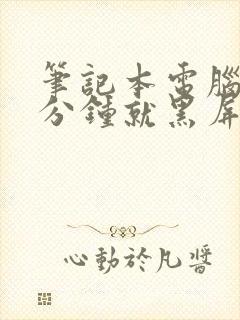 筆記本電腦
分鐘就黑屏
心動於凡醬